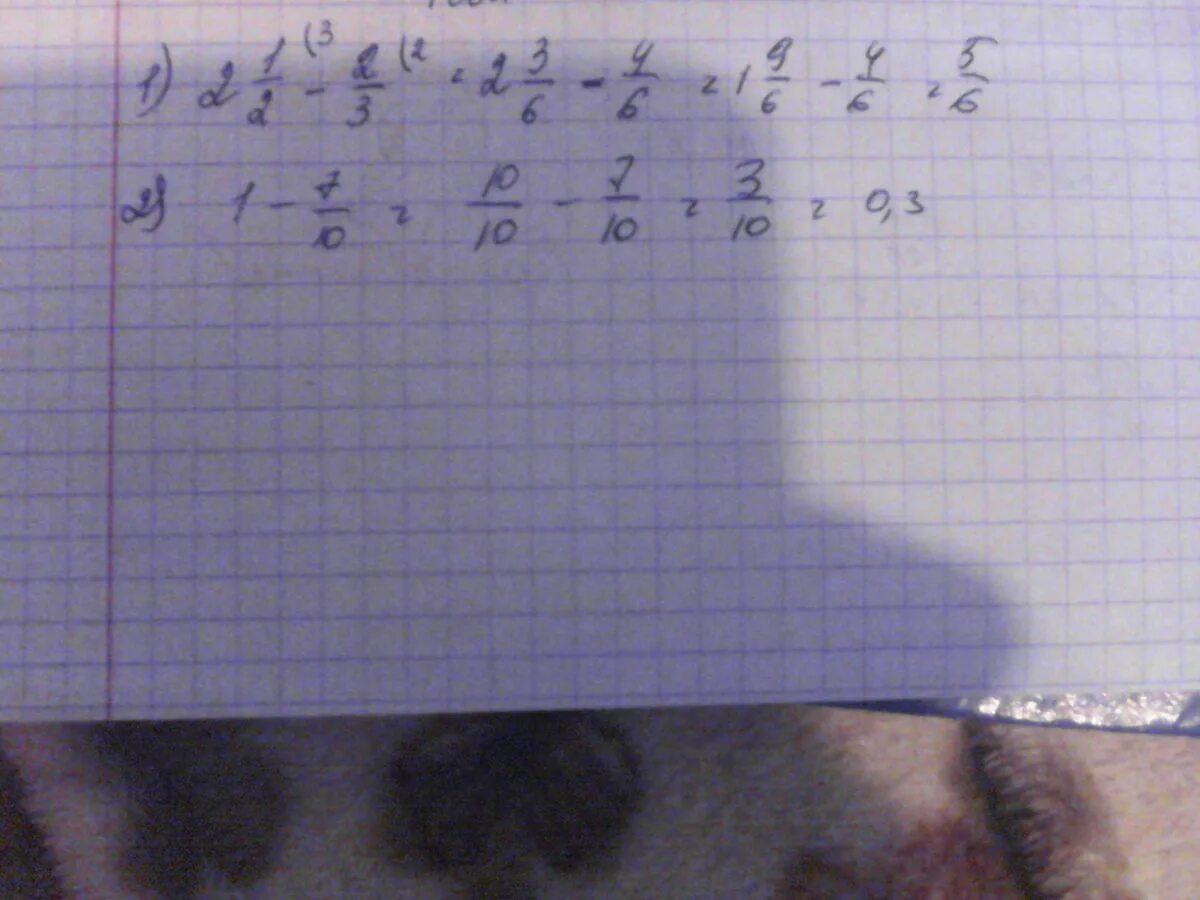 1) 2 1/2 (3 - 2/3 (2 = 2 3/6 - 4/6 = 1 9/6 - 4/6 = 5/6
2) 1 - 7/10 = 10/10 - 7/10 = 3/10 = 0,3